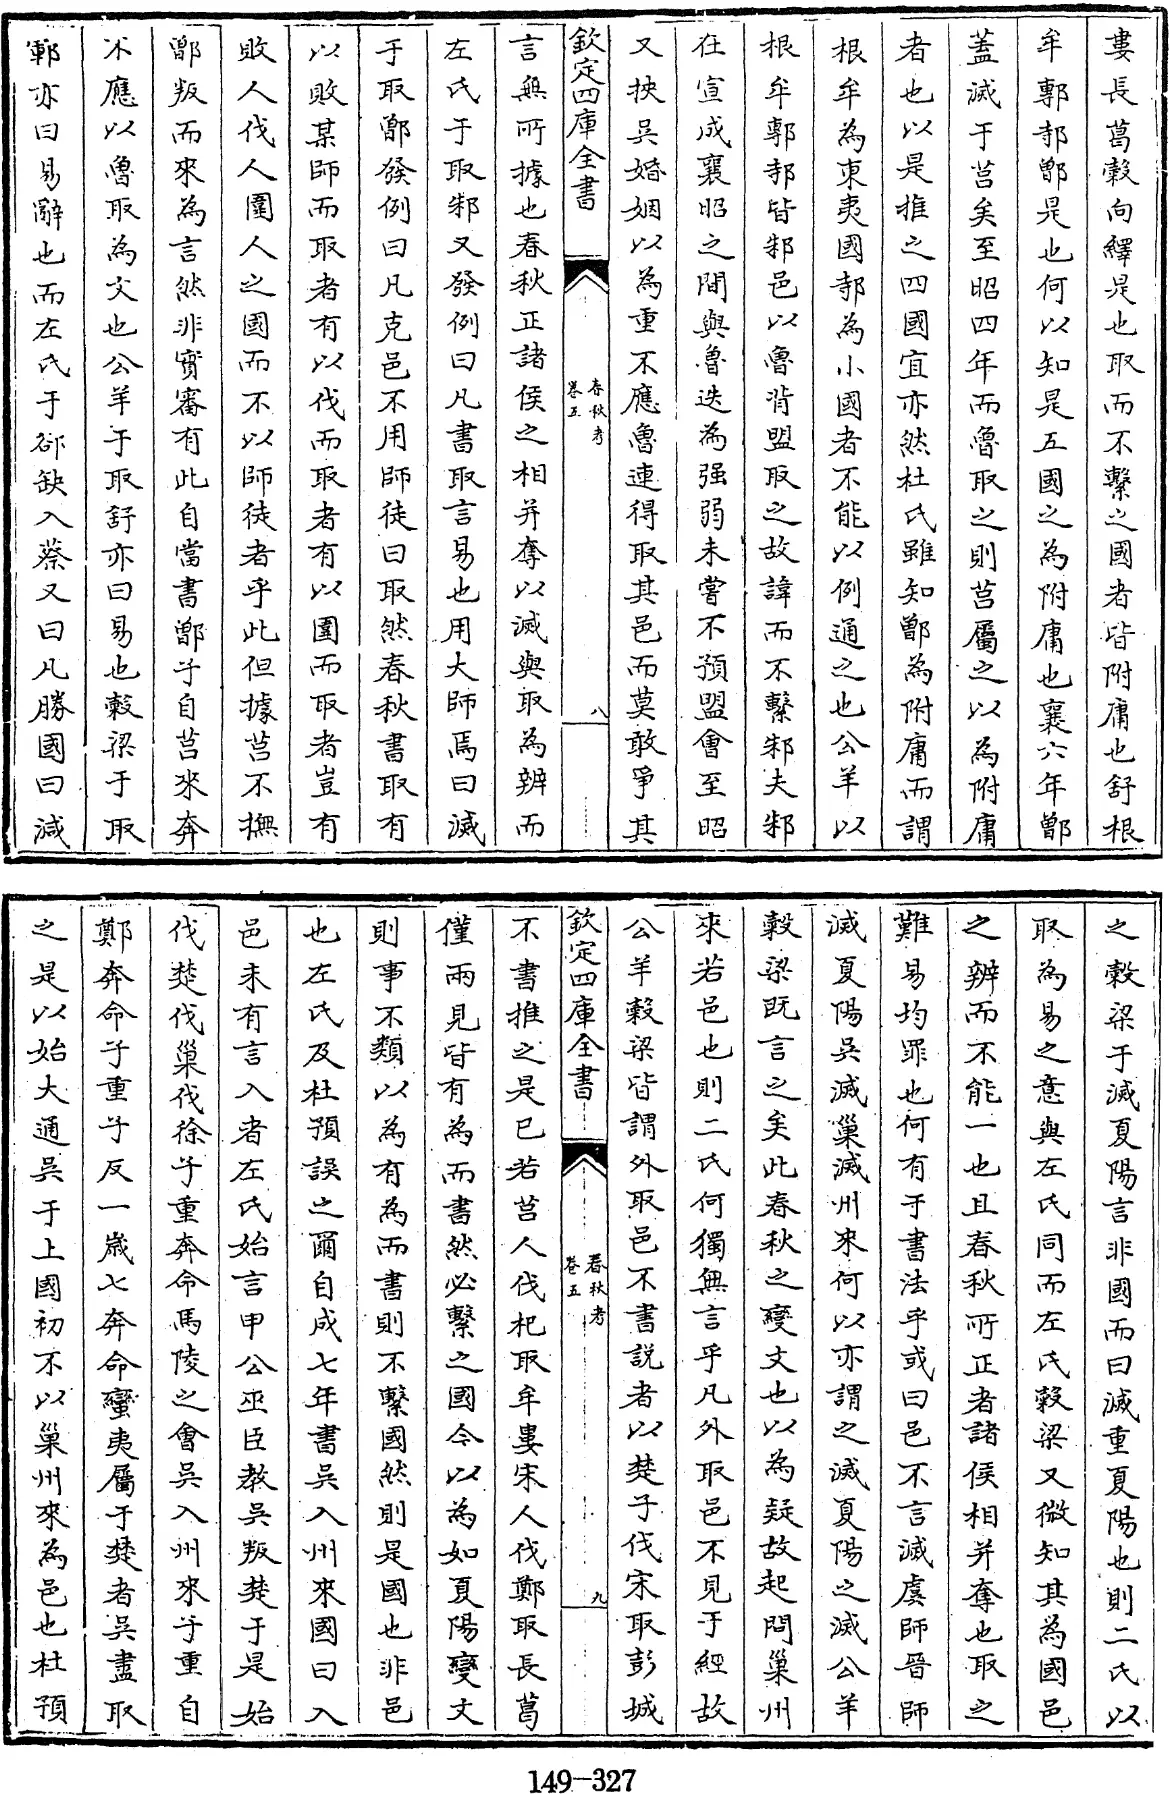 婁長葛穀向繹是也取而不繫之國者皆附庸也舒根
牟鄟邿鄫是也何以知是五國之為附庸也襄六年鄫
蓋滅于莒矣至昭四年而魯取之則莒屬之以為附庸
者也以是推之四國宜亦然杜氏雖知鄫為附庸而謂
根牟為東夷國邿為小國者不能以例通之也公羊以
根牟鄟邿皆邾邑以魯背盟取之故諱而不繫邾夫邾
在宣成襄昭之間與魯迭為强弱未嘗不預盟會至昭
又挾吳婚姻以為重不應魯連得取其邑而莫敢爭其
欽定四庫全書
春秋考
卷五
八
言無所據也春秋正諸侯之相并奪以滅與取為辨而
左氏于取邾又發例曰凡書取言易也用大師焉曰滅
于取鄫發例曰凡克邑不用師徒曰取然春秋書取有
以敗某師而取者有以伐而取者有以圍而取者豈有
敗人伐人圍人之國而不以師徒者乎此但據莒不撫
鄫叛而來為言然非實審有此自當書鄫子自莒來奔
不應以魯取為文也公羊于取舒亦曰易也穀梁于取
鄟亦曰易辭也而左氏于郤缺入蔡又曰凡勝國曰滅
之穀梁于滅夏陽言非國而曰滅重夏陽也則二氏以
取為易之意與左氏同而左氏穀梁又微知其為國邑
之辨而不能一也且春秋所正者諸侯相并奪也取之
難易均罪也何有于書法乎或曰邑不言滅虞師晉師
滅夏陽吳滅巢滅州來何以亦謂之滅夏陽之滅公羊
穀梁既言之矣此春秋之變文也以為疑故起問巢州
來若邑也則二氏何獨無言乎凡外取邑不見于經故
公羊穀梁皆謂外取邑不書説者以楚子伐宋取彭城
欽定四庫全書
春秋考
卷五
九
不書推之是已若莒人伐杞取牟婁宋人伐鄭取長葛
僅兩見皆有為而書然必繫之國今以為如夏陽變文
則事不類以為有為而書則不繫國然則是國也非邑
也左氏及杜預誤之爾自成七年書吳入州來國曰入
邑未有言入者左氏始言申公巫臣教吳叛楚于是始
伐楚伐巢伐徐子重奔命馬陵之會吳入州來子重自
鄭奔命子重子反一歲七奔命蠻夷屬于楚者吳盡取
之是以始大通吳于上國初不以巢州來為邑也杜預
149-327